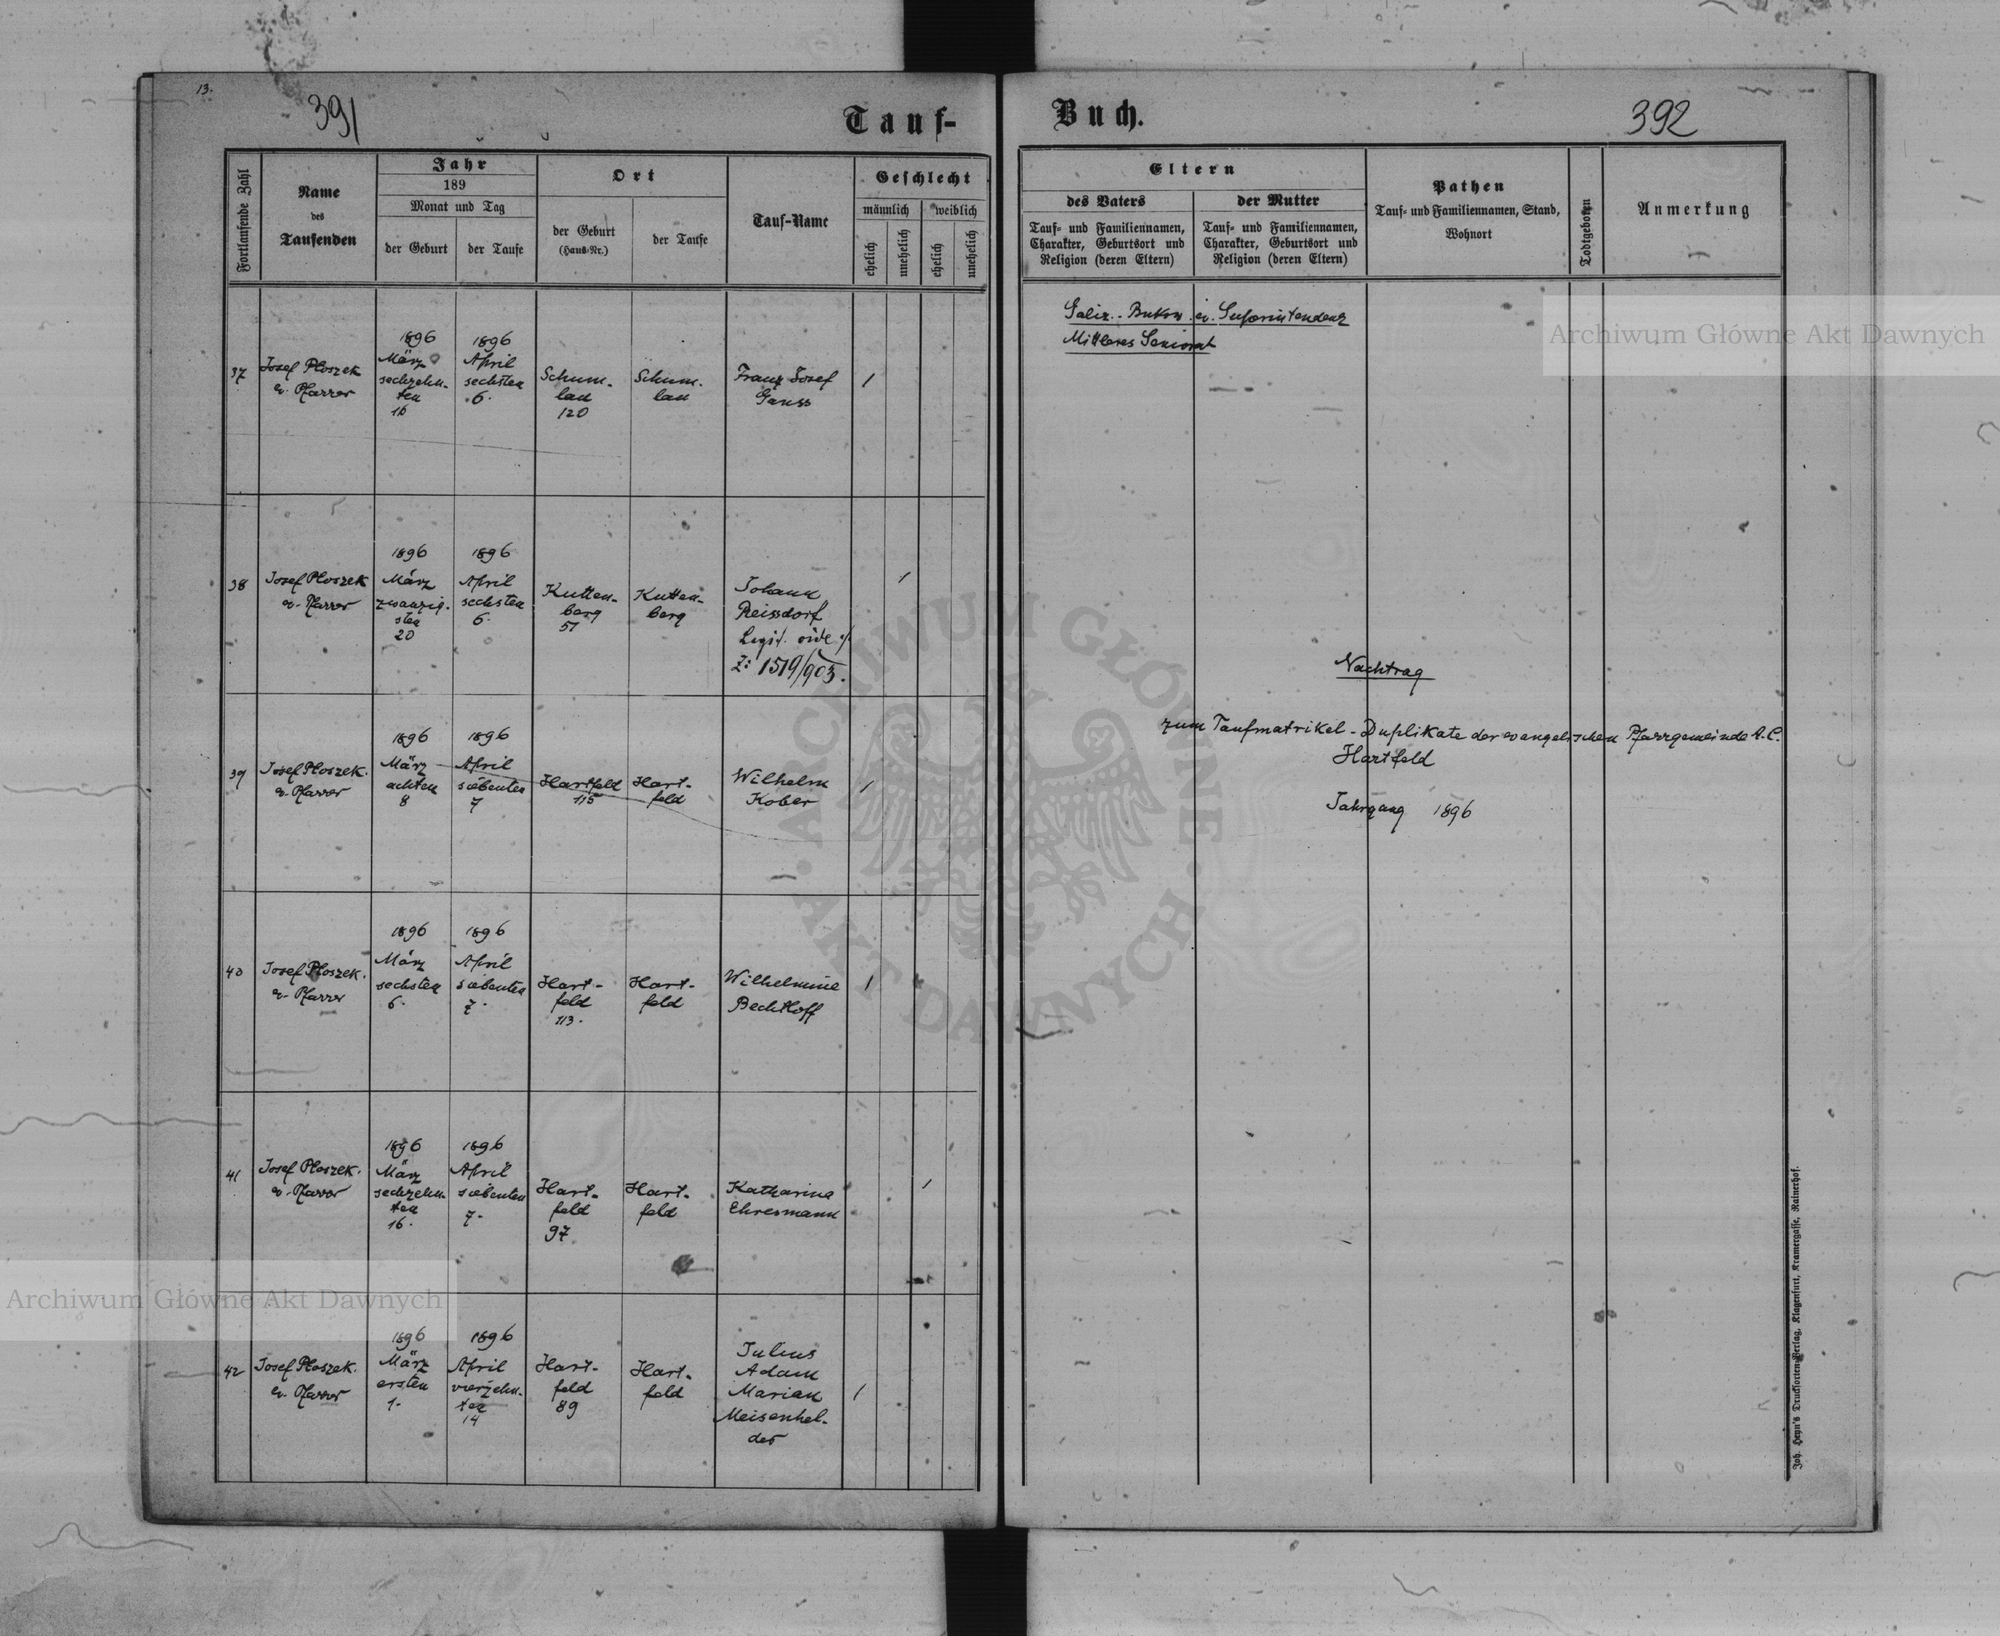 13.
391
Tauf-
Fortlaufende Zahl
Name
des
Taufenden
Jahr
189
Monat und Tag
der Geburt
der Taufe
Ort
der Geburt
(Haus-Nr.)
der Taufe
Tauf-Name
Geschlecht
männlich
weiblich
ehelich
unehelich
ehelich
unehelich
37
Josef Ploszek
ev. Pfarrer
1896
März
sechzehn-
ten
16
1896
April
sechsten
6.
Schum-
lau
120
Schum-
lau
Franz Josef
Gauss
1
38
Josef Ploszek
ev. Pfarrer
1896
März
zwanzig-
sten
20
1896
April
sechsten
6.
Kutten-
berg
57
Kutten-
berg
Johann
Reissdorf
Legit. vide
Z: 1519/903.
1
39
Josef Ploszek.
ev. Pfarrer
1896
März
achten
8
1896
April
siebenten
7
Hartfeld
115
Hart-
feld
Wilhelm
Kober
1
40
Josef Ploszek.
ev. Pfarrer
1896
März
sechsten
6.
1896
April
siebenten
7.
Hart-
feld
113.
Hart-
feld
Wilhelmine
Bechtloff
1
41
Josef Ploszek.
ev. Pfarrer
1896
März
sechzehn-
ten
16.
1896
April
siebenten
7.
Hart-
feld
97
Hart-
feld
Katharina
Ehresmann
1
42
Josef Ploszek.
ev. Pfarrer
1896
März
ersten
1.
1896
April
vierzehn-
ten
14
Hart-
feld
89
Hart-
feld
Julius
Adam
Marian
Meisenhel-
der
1
Buch.
392
Eltern
des Vaters
Tauf- und Familiennamen,
Charakter, Geburtsort und
Religion (deren Eltern)
der Mutter
Tauf- und Familiennamen,
Charakter, Geburtsort und
Religion (deren Eltern)
Pathen
Tauf- und Familiennamen, Stand,
Wohnort
Todtgeboren
Anmerkung
Galiz.-Bukow. ev. Superintendenz
Mittleres Seniorat
Nachtrag
zum Taufmatrikel-Duplikate der evangelischen Pfarrgemeinde A. C.
Hartfeld
Jahrgang 1896
Joh. Heyn's Drucksorten-Verlag, Klagenfurt, Kramergasse, Rainerhof.
Archiwum Główne Akt Dawnych
ARCHIWUM GŁÓWNE
AKT DAWNYCH
Archiwum Główne Akt Dawnych